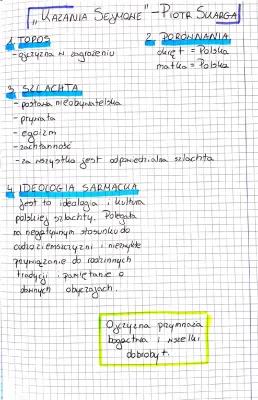 „KAZANIA SEJMOWE" - PIOTR SKARGA
1. TOPOS
- ojczyzna w zagrożeniu
2. PORÓWNANIA
okręt = Polska
matka = Polska
3. SZLACHTA
- postawa nieobywatelska
- prywata
- egoizm
- zachłanność
- za wszystko jest odpowiedzialna szlachta
4. IDEOLOGIA SARMACKA
Jest to ideologia i kultura
polskiej szlachty. Polegała
na negatywnym stosunku do
cudzoziemszczyzny i niezwykłe
przywiązanie do rodzinnych
tradycji i pamiętanie o
dawnych obyczajach.
Ojczyzna przymnaża
bogactwa i wszelki
dobrobyt.